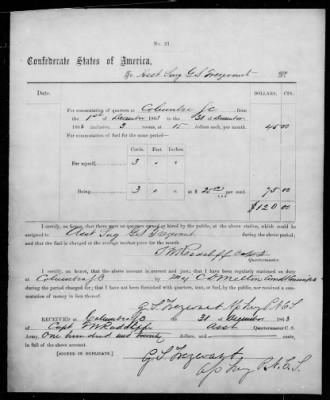 No. 21.
Confederate States of America,
To Asst Surg G. S. Trezevant Dr.
Date. DOLLARS. CTS.
For commutation of quarters at Columbia S.C. from
the 1st of December 1863 to the 31 of December
1863 inclusive, 3 rooms, at 15 dollars each, per month. 45 00
For commutation of fuel for the same period—
Cords. Feet. Inches.
For myself, 3 " "
Being 3 " " at $25 00 per cord. 75 00
$120 00
I certify, on honor, that there are no quarters owned or hired by the public, at the above station, which could be
assigned to Asst Surg G. S. Trezevant during the above period;
and that the fuel is charged at the average market price for the month.
Quartermaster.
I certify, on honor, that the above account is correct and just; that I have been regularly stationed on duty
at Columbia S.C. by
during the period charged for; that I have not been furnished with quarters, rent, or fuel, by the public, nor received a com-
mutation of money in lieu thereof.
G. S. Trezevant
RECEIVED at Columbia S.C. 31 of December 1863
of Capt Asst Quartermaster C. S.
Army, One hundred and twenty
in full of the above account.
[SIGNED IN DUPLICATE.]
G. S. Trezevant